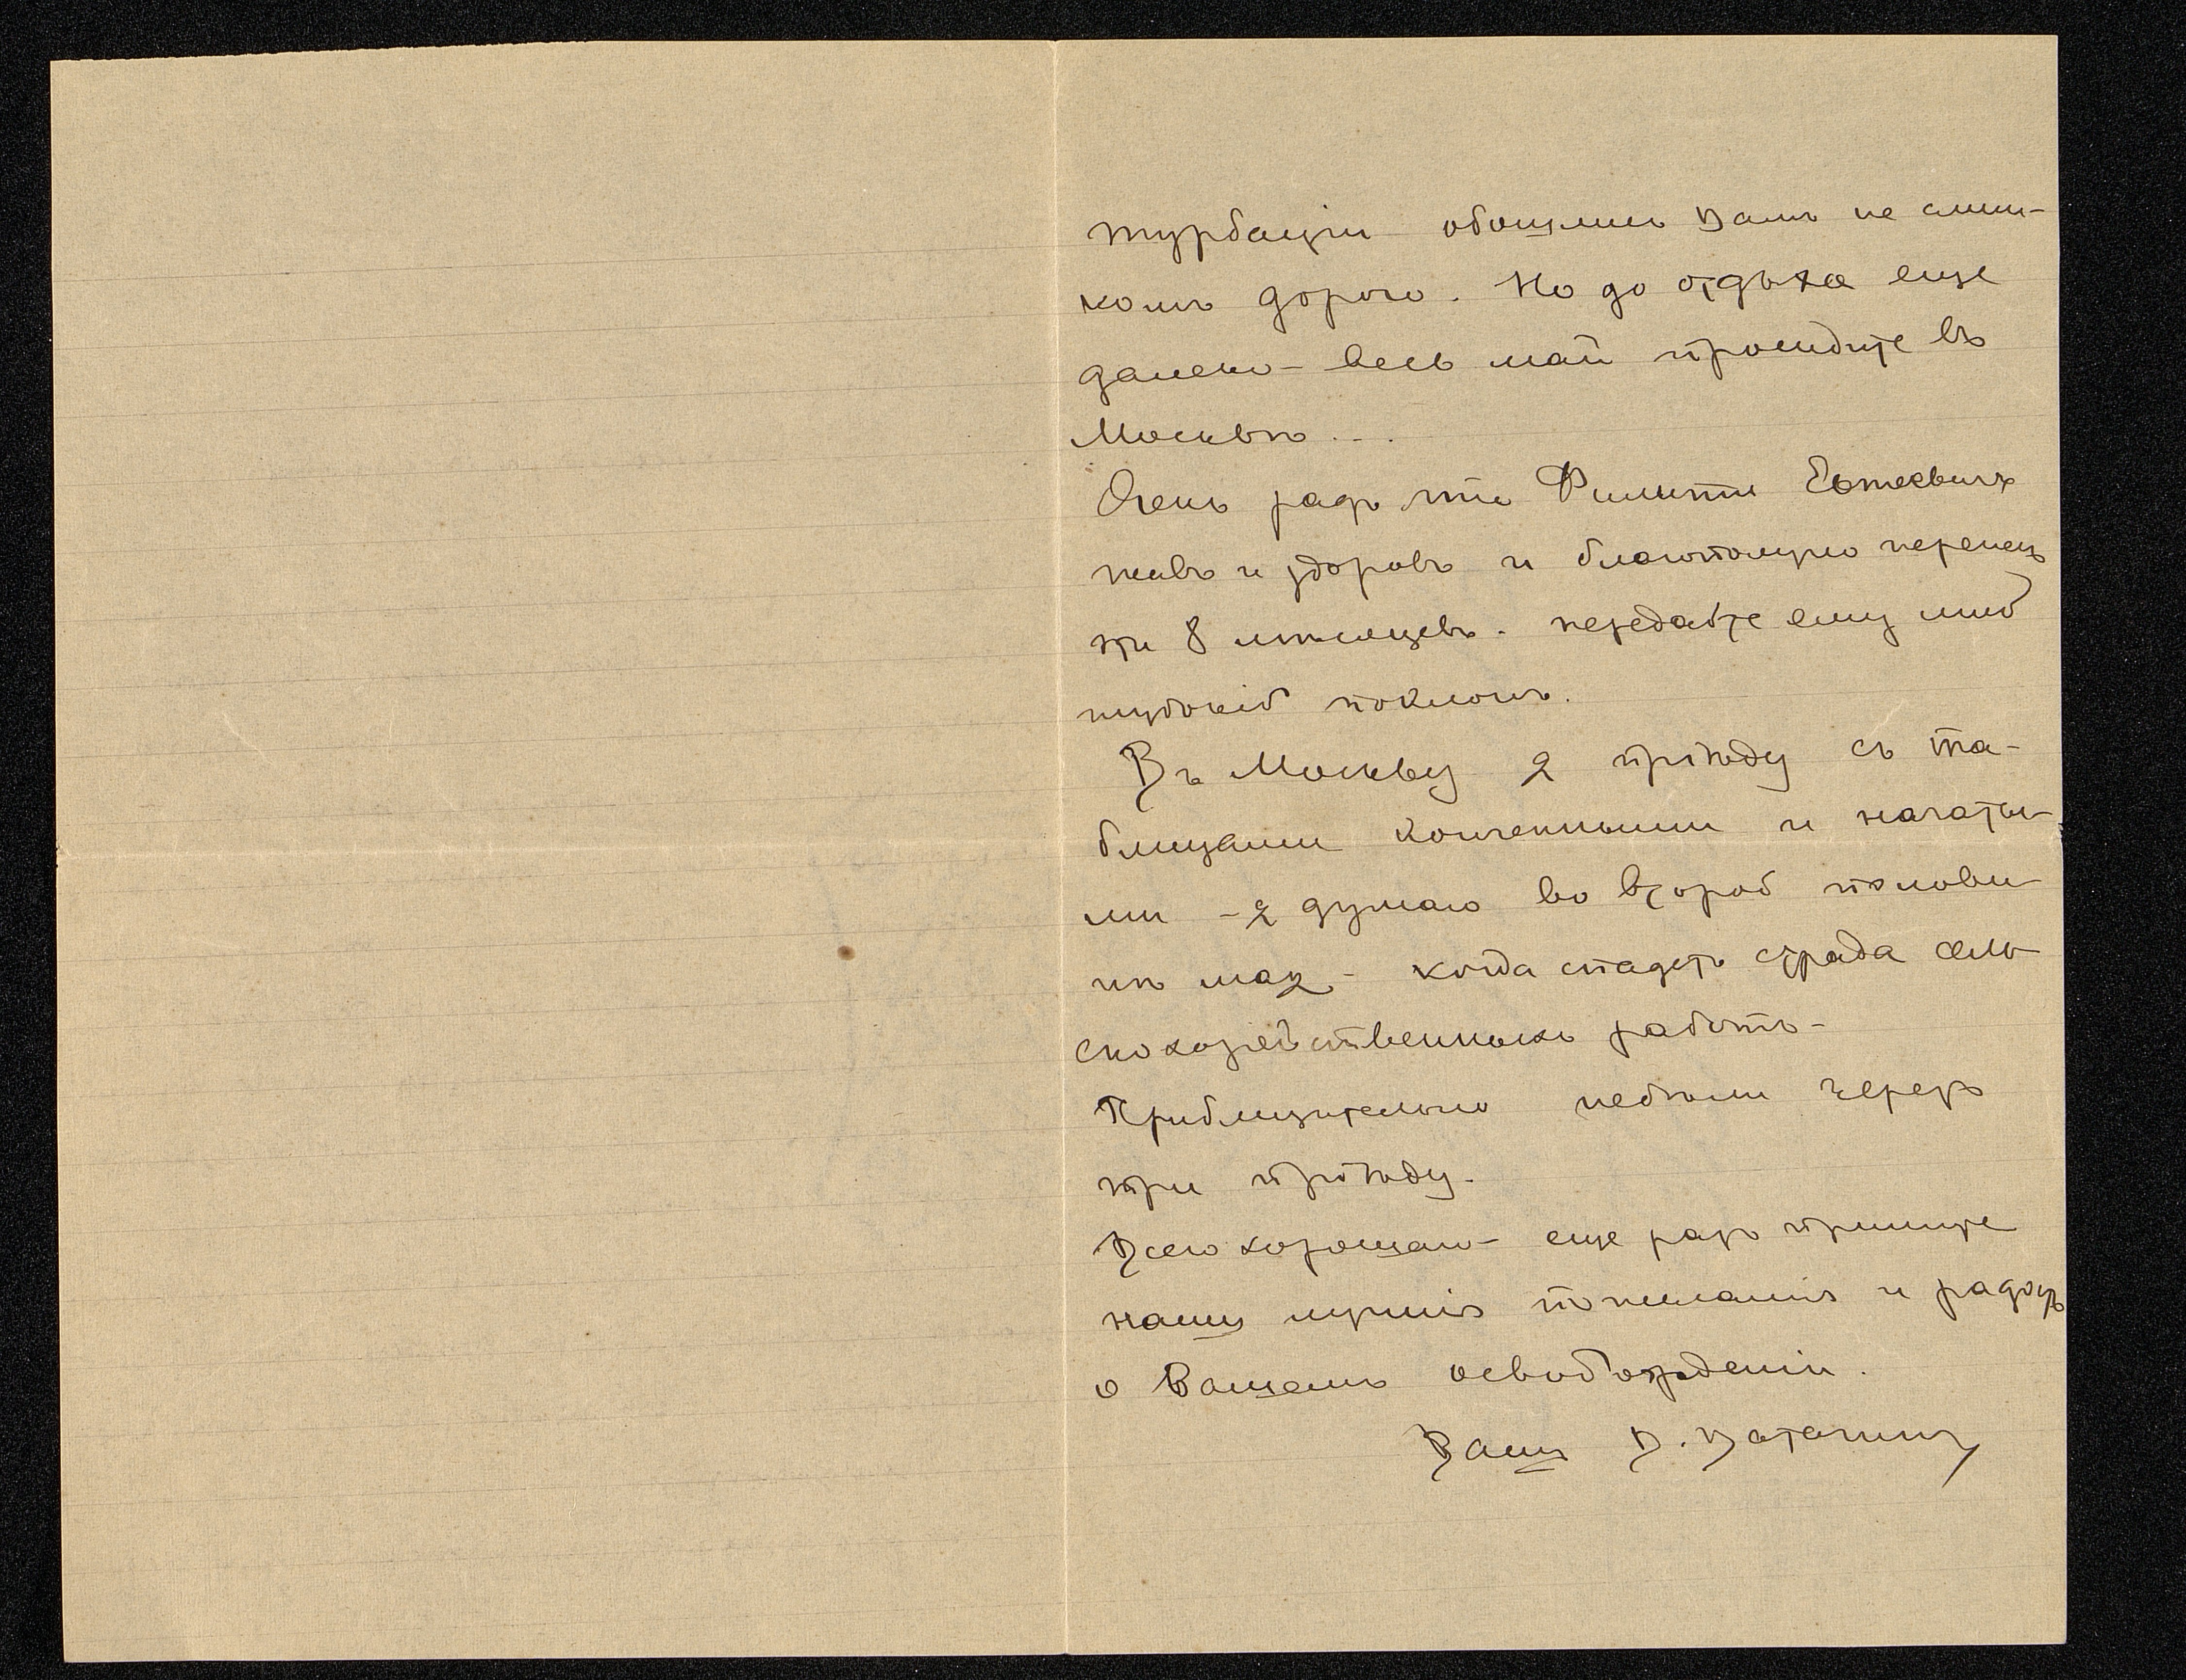 турбаціи обошлись Вамъ не слиш-
комъ дорого. Но до отдыха еще
далеко – весь май просидите въ
Москвѣ...
Очень радъ что Филиппъ
живъ и здоровъ и благополучно перенесъ
эти 8 мѣсяцевъ. передайте ему мой
глубокій поклонъ.
Въ Москву я пріѣду съ та-
блицами конченными и начаты-
ми – я думаю во второй полови-
нѣ мая – когда спадетъ страда сель-
скохозяйственныхъ работъ –
Приблизительно недѣли черезъ
три пріѣду.
Всего хорошаго – еще разъ примите
наши лучшія пожеланія и радость
о Вашемъ освобожденіи.
Вашъ В. Ватагинъ